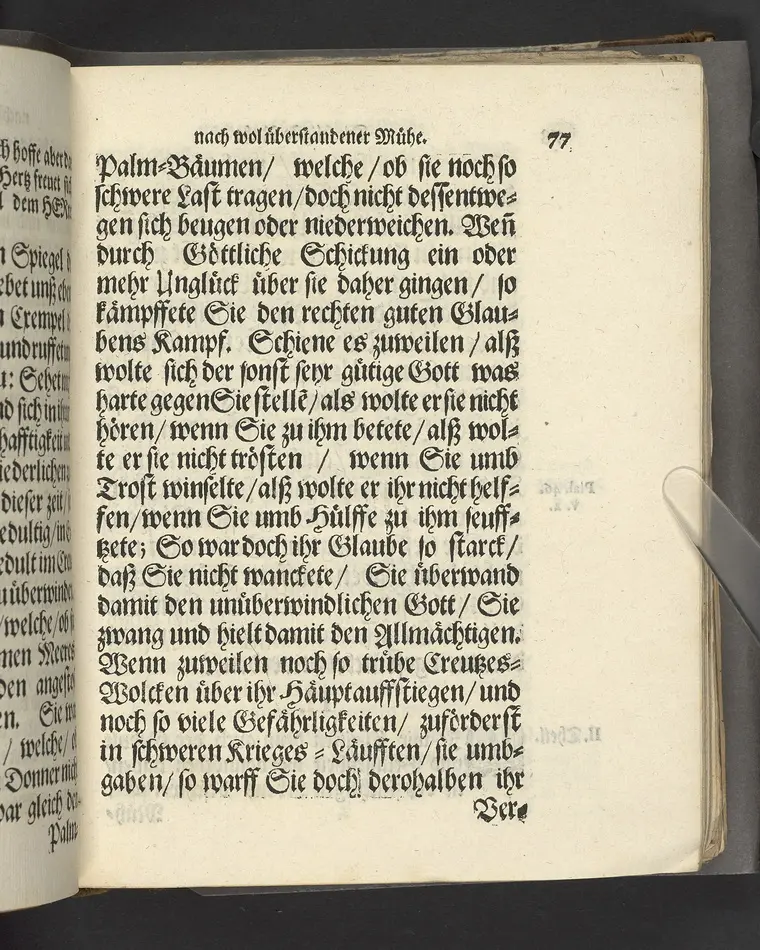 nach wol überstandener Mühe. 77
Palm-Bäumen/ welche/ob sie noch so
schwere Last tragen/doch nicht dessentwe-
gen sich beugen oder niederweichen. Weñ
durch Göttliche Schickung ein oder
mehr Unglück über sie daher gingen/ so
kämpffete Sie den rechten guten Glau-
bens Kampf. Schiene es zuweilen/alß
wolte sich der sonst sehr gütige Gott was
harte gegen Sie stellē/als wolte er sie nicht
hören/wenn Sie zu ihm betete/alß wol-
te er sie nicht trösten / wenn Sie umb
Trost winselte/alß wolte er ihr nicht helf-
fen/wenn Sie umb Hülffe zu ihm seuff-
tzete; So war doch ihr Glaube so starck/
daß Sie nicht wanckete/ Sie überwand
damit den unüberwindlichen Gott/ Sie
zwang und hielt damit den Allmächtigen.
Wenn zuweilen noch so trübe Creutzes-
Wolcken über ihr Häupt auffstiegen/und
noch so viele Gefährligkeiten/ zuförderst
in schweren Krieges-Läufften/sie umb-
gaben/so warff Sie doch derohalben ihr
Ver-
ch hoffe aber da
Hertz freuet si
dem HEr
Spiegel
ebet unß
Exempel
: Sehet
nd sich in
hafftigkeit
iederlichen
dieser zeit/
edultig/in
edult im
überwinde
/welche/ob
men Meeres
den angesto
en. Sie
/ welche/
Donner nich
gleich den
Palm-